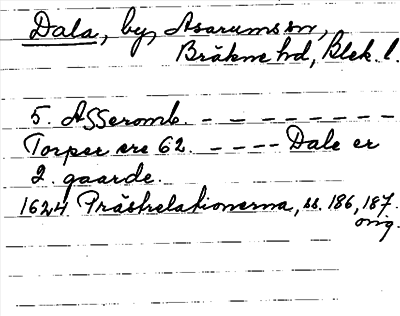 Dala, by, Asarums sn,
Bräkne hd, Blek. l.
5. Asseromb. – – – – – – – –
Torper ere 62. – – – – Dale er
2 gaarde.
1624 Prästrelationerna, ss. 186, 187.
orig.